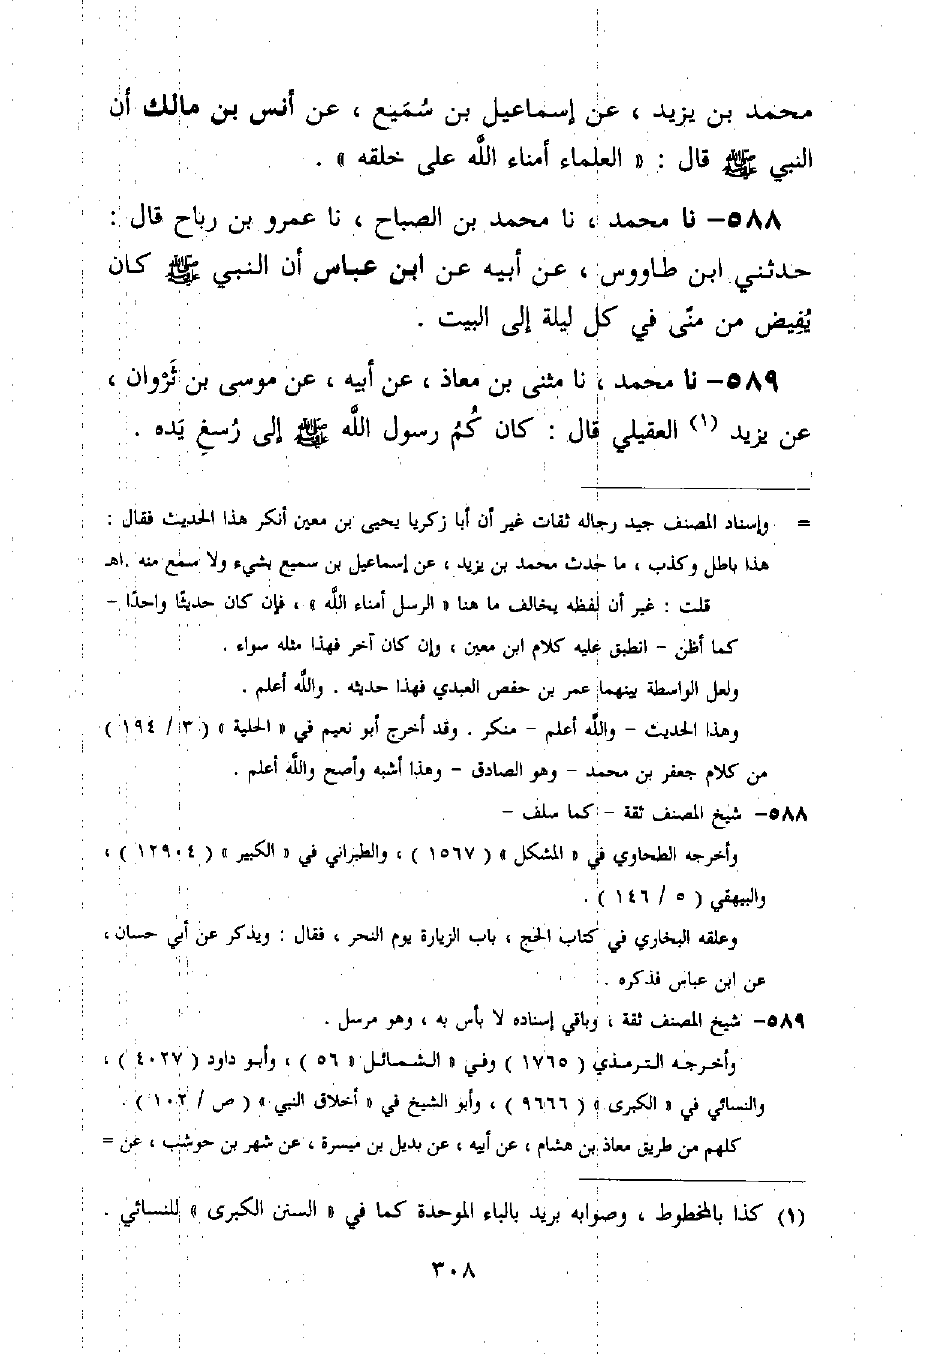 محمد بن يزيد ، عن إسماعيل بن سُمَيع ، عن أنس بن مالك أن
النبي ﷺ قال : « العلماء أمناء اللَّه على خلقه » .
٥٨٨– نا محمد ، نا محمد بن الصباح ، نا عمرو بن رباح قال :
حدثني ابن طاووس ، عن أبيه عن ابن عباس أن النبي ﷺ كان
يُفِيض من منًى في كل ليلة إلى البيت .
٥٨٩– نا محمد ، نا مثنى بن معاذ ، عن أبيه ، عن موسى بن ثَرْوان ،
عن يزيد (١) العقيلي قال : كان كُمُ رسول اللَّه ﷺ إلى رُسغِ يَده .
= وإسناد المصنف جيد رجاله ثقات غير أن أبا زكريا يحيى بن معين أنكر هذا الحديث فقال :
هذا باطل وكذب ، ما حدث محمد بن يزيد ، عن إسماعيل بن سميع بشيء ولا سمع منه .اهـ
قلت : غير أن لفظه يخالف ما هنا « الرسل أمناء اللَّه » ، فإن كان حديثًا واحدًا –
كما أظن – انطبق عليه كلام ابن معين ، وإن كان آخر فهذا مثله سواء .
ولعل الواسطة بينهما عمر بن حفص العبدي فهذا حديثه . واللَّه أعلم .
وهذا الحديث – واللَّه أعلم – منكر . وقد أخرج أبو نعيم في « الحلية » ( ٣ / ١٩٤ )
من كلام جعفر بن محمد – وهو الصادق – وهذا أشبه وأصح واللَّه أعلم .
٥٨٨– شيخ المصنف ثقة – كما سلف –
وأخرجه الطحاوي في « المشكل » ( ١٥٦٧ ) ، والطبراني في « الكبير » ( ١٢٩٠٤ ) ،
والبيهقي ( ٥ / ١٤٦ ) .
وعلقه البخاري في كتاب الحج ، باب الزيارة يوم النحر ، فقال : ويذكر عن أبي حسان ،
عن ابن عباس فذكره .
٥٨٩– شيخ المصنف ثقة ، وباقي إسناده لا بأس به ، وهو مرسل .
وأخرجه الترمذي ( ١٧٦٥ ) وفي « الشمائل « ٥٦ ) ، وأبو داود ( ٤٠٢٧ ) ،
والنسائي في « الكبرى » ( ٩٦٦٦ ) ، وأبو الشيخ في « أخلاق النبي » ( ص / ١٠٢ ) .
كلهم من طريق معاذ بن هشام ، عن أبيه ، عن بديل بن ميسرة ، عن شهر بن حوشب ، عن =
(١) كذا بالمخطوط ، وصوابه بريد بالباء الموحدة كما في « السنن الكبرى » للنسائي .
٣٠٨